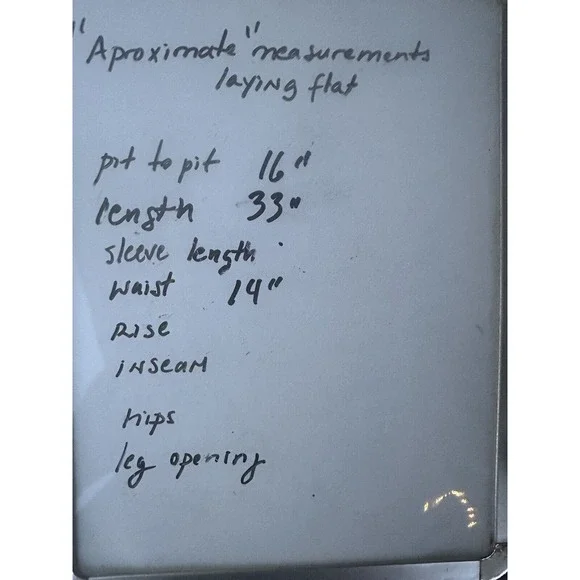 "Aproximate" measurements
laying flat
pit to pit 16"
length 33"
sleeve length
waist 14"
Rise
inseam
hips
leg opening